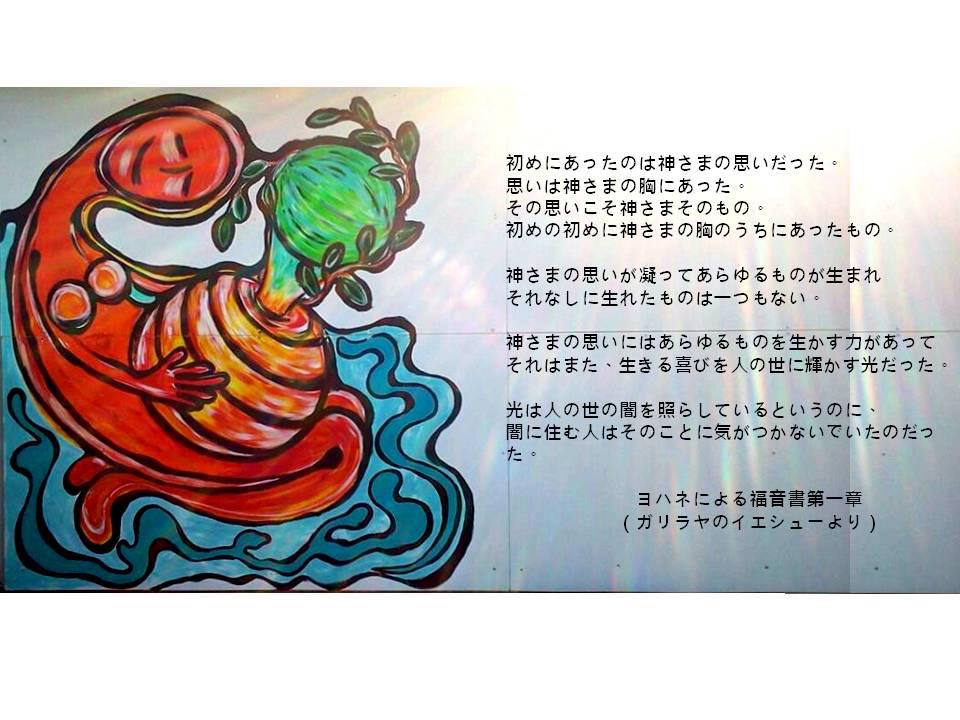 初めにあったのは神さまの思いだった。
思いは神さまの胸にあった。
その思いこそ神さまそのもの。
初めの初めに神さまの胸のうちにあったもの。
神さまの思いが凝ってあらゆるものが生まれ
それなしに生れたものは一つもない。
神さまの思いにはあらゆるものを生かす力があって
それはまた、生きる喜びを人の世に輝かす光だった。
光は人の世の闇を照らしているというのに、
闇に住む人はそのことに気がつかないでいたのだっ
た。
ヨハネによる福音書第一章
（ガリラヤのイエシューより）